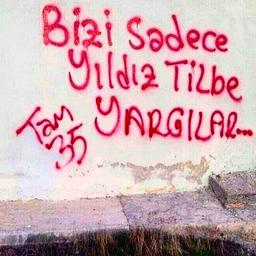 Bizi Sadece
Yıldız Tilbe
YARGILAR...
Tam
35